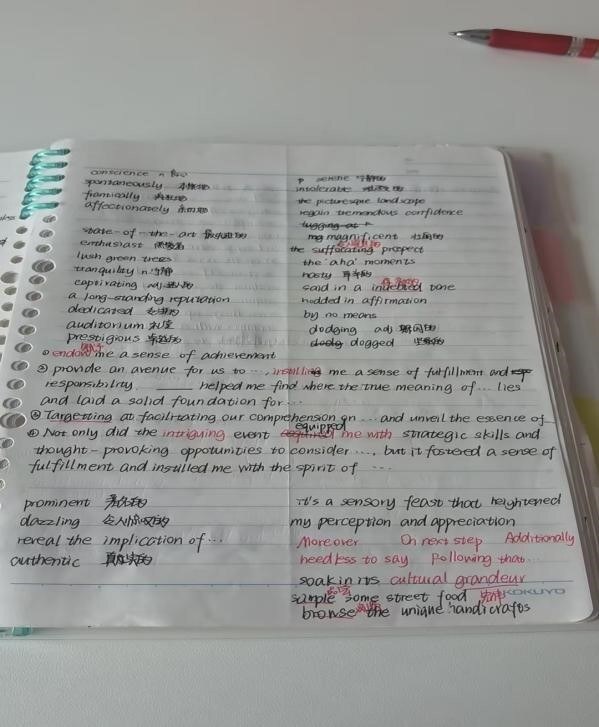 conscience n
spontaneously 本能地
frantically 疯狂地
affectionately 亲切地
state-of-the-art 最先进的
enthusiast 热衷者
lush green trees
tranquility n 宁静
captivating adj 迷人的
a long-standing reputation
dedicated 专注的
auditorium 礼堂
prestigious 卓越的
serene 宁静的
intolerable 难忍的
the picturesque landscape
regain tremendous confidence
magnificent 壮丽的
the suffocating prospect
the 'aha' moments
hasty 草率的
said in a tone
nodded in affirmation
by no means
dodging adj
dogged 坚毅的
① endow me a sense of achievement
② provide an avenue for us to ..., instilling me a sense of fulfillment and
responsibility. ____ helped me find where the true meaning of ... lies
and laid a solid foundation for ...
③ Targetting at facilitating our comprehension on ... and unveil the essence of
④ Not only did the intriguing event equipped me with strategic skills and
thought-provoking oppotunities to consider ..., but it fostered a sense of
fulfillment and instilled me with the spirit of ...
prominent 著名的
dazzling 令人惊叹的
reveal the implication of ...
authentic 真实的
it's a sensory feast that heightened
my perception and appreciation
Moreover On next step Additionally
needless to say Following that ...
soak in its cultural grandeur
sample some street food 宏伟
browse the unique handicrafts
KOKUYO